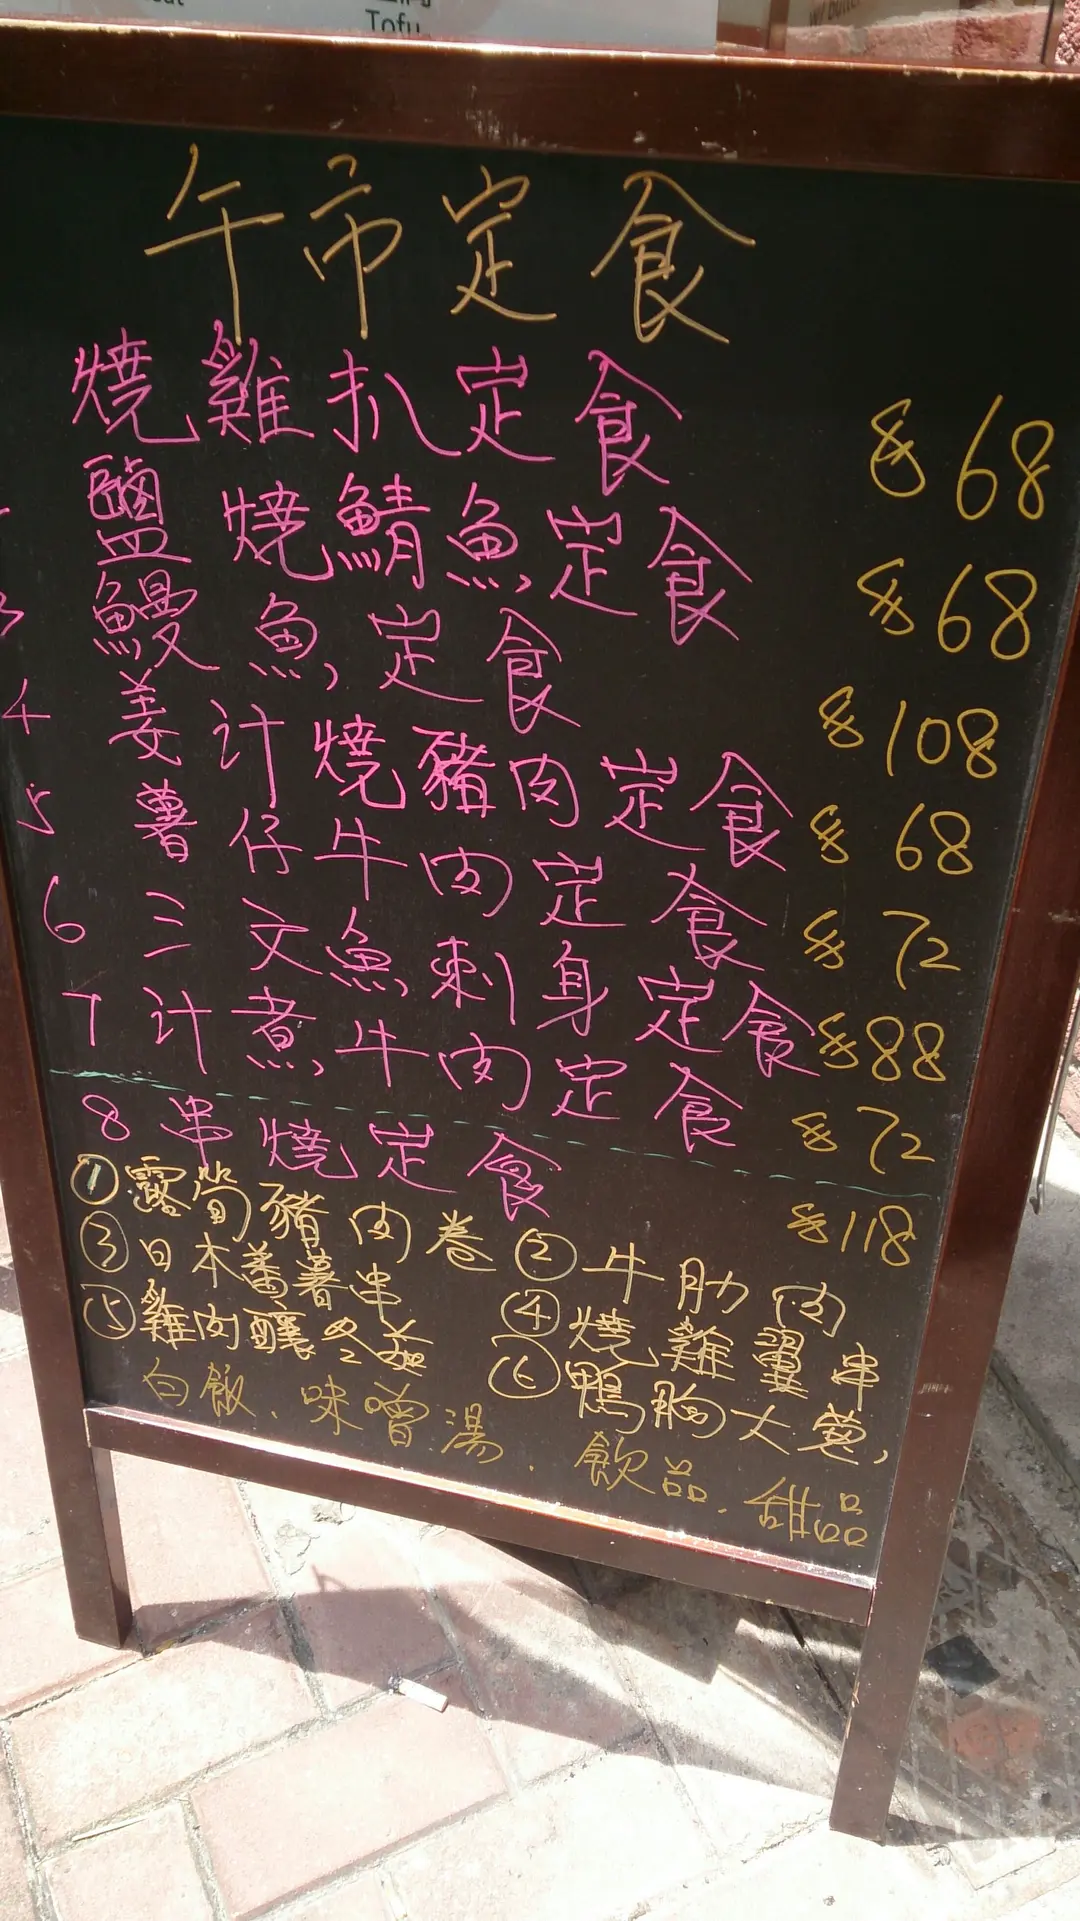 Tofu
午市定食
燒雞扒定食 $68
鹽燒鯖魚定食 $68
3 鰻魚定食 $108
4 姜汁燒豬肉定食 $68
5 薯仔牛肉定食 $72
6 三文魚刺身定食 $88
7 汁煮牛肉定食 $72
8 串燒定食 $118
① 露筍豬肉卷 ② 牛肋肉
③ 日本蕃薯串 ④ 燒雞翼串
⑤ 雞肉釀冬菇 ⑥ 鴨胸大葱
白飯、味噌湯、飲品、甜品